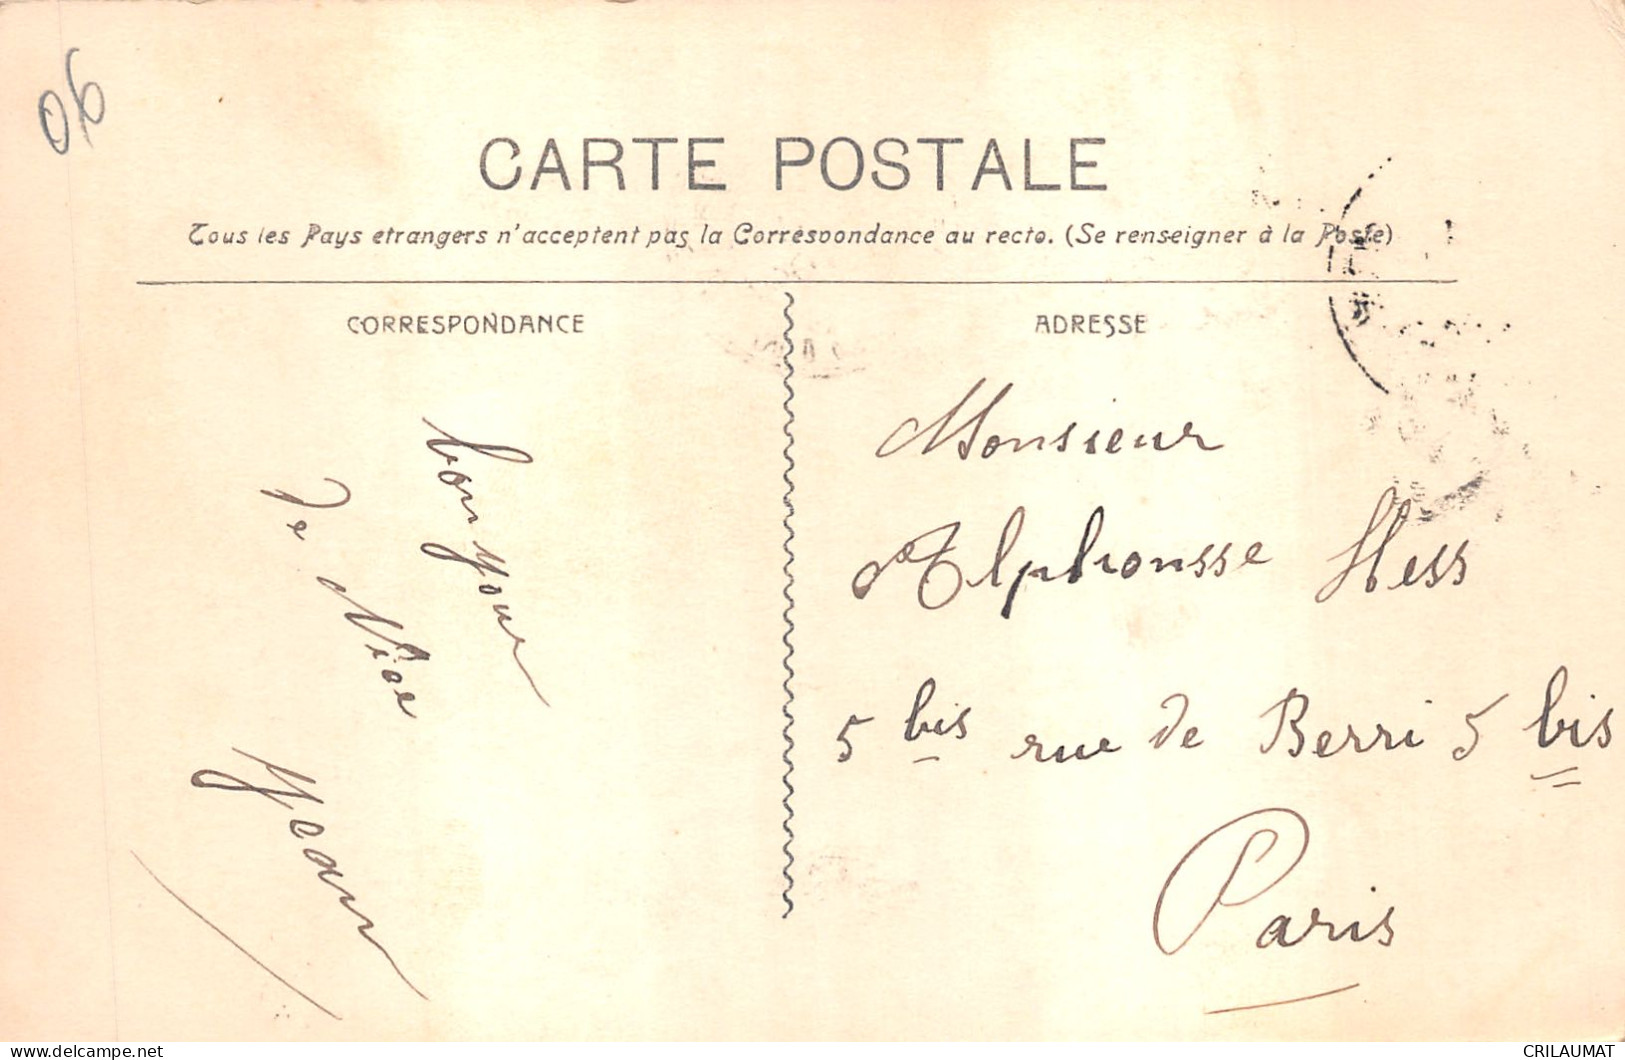 06
CARTE POSTALE
Tous les Pays etrangers n'acceptent pas la Correspondance au recto. (Se renseigner à la Poste)
CORRESPONDANCE
bonjour
de Nice
Jean
ADRESSE
Monsieur
Alphonsse Hess
5 bis rue de Berri 5 bis
Paris
www.delcampe.net
CRILAUMAT